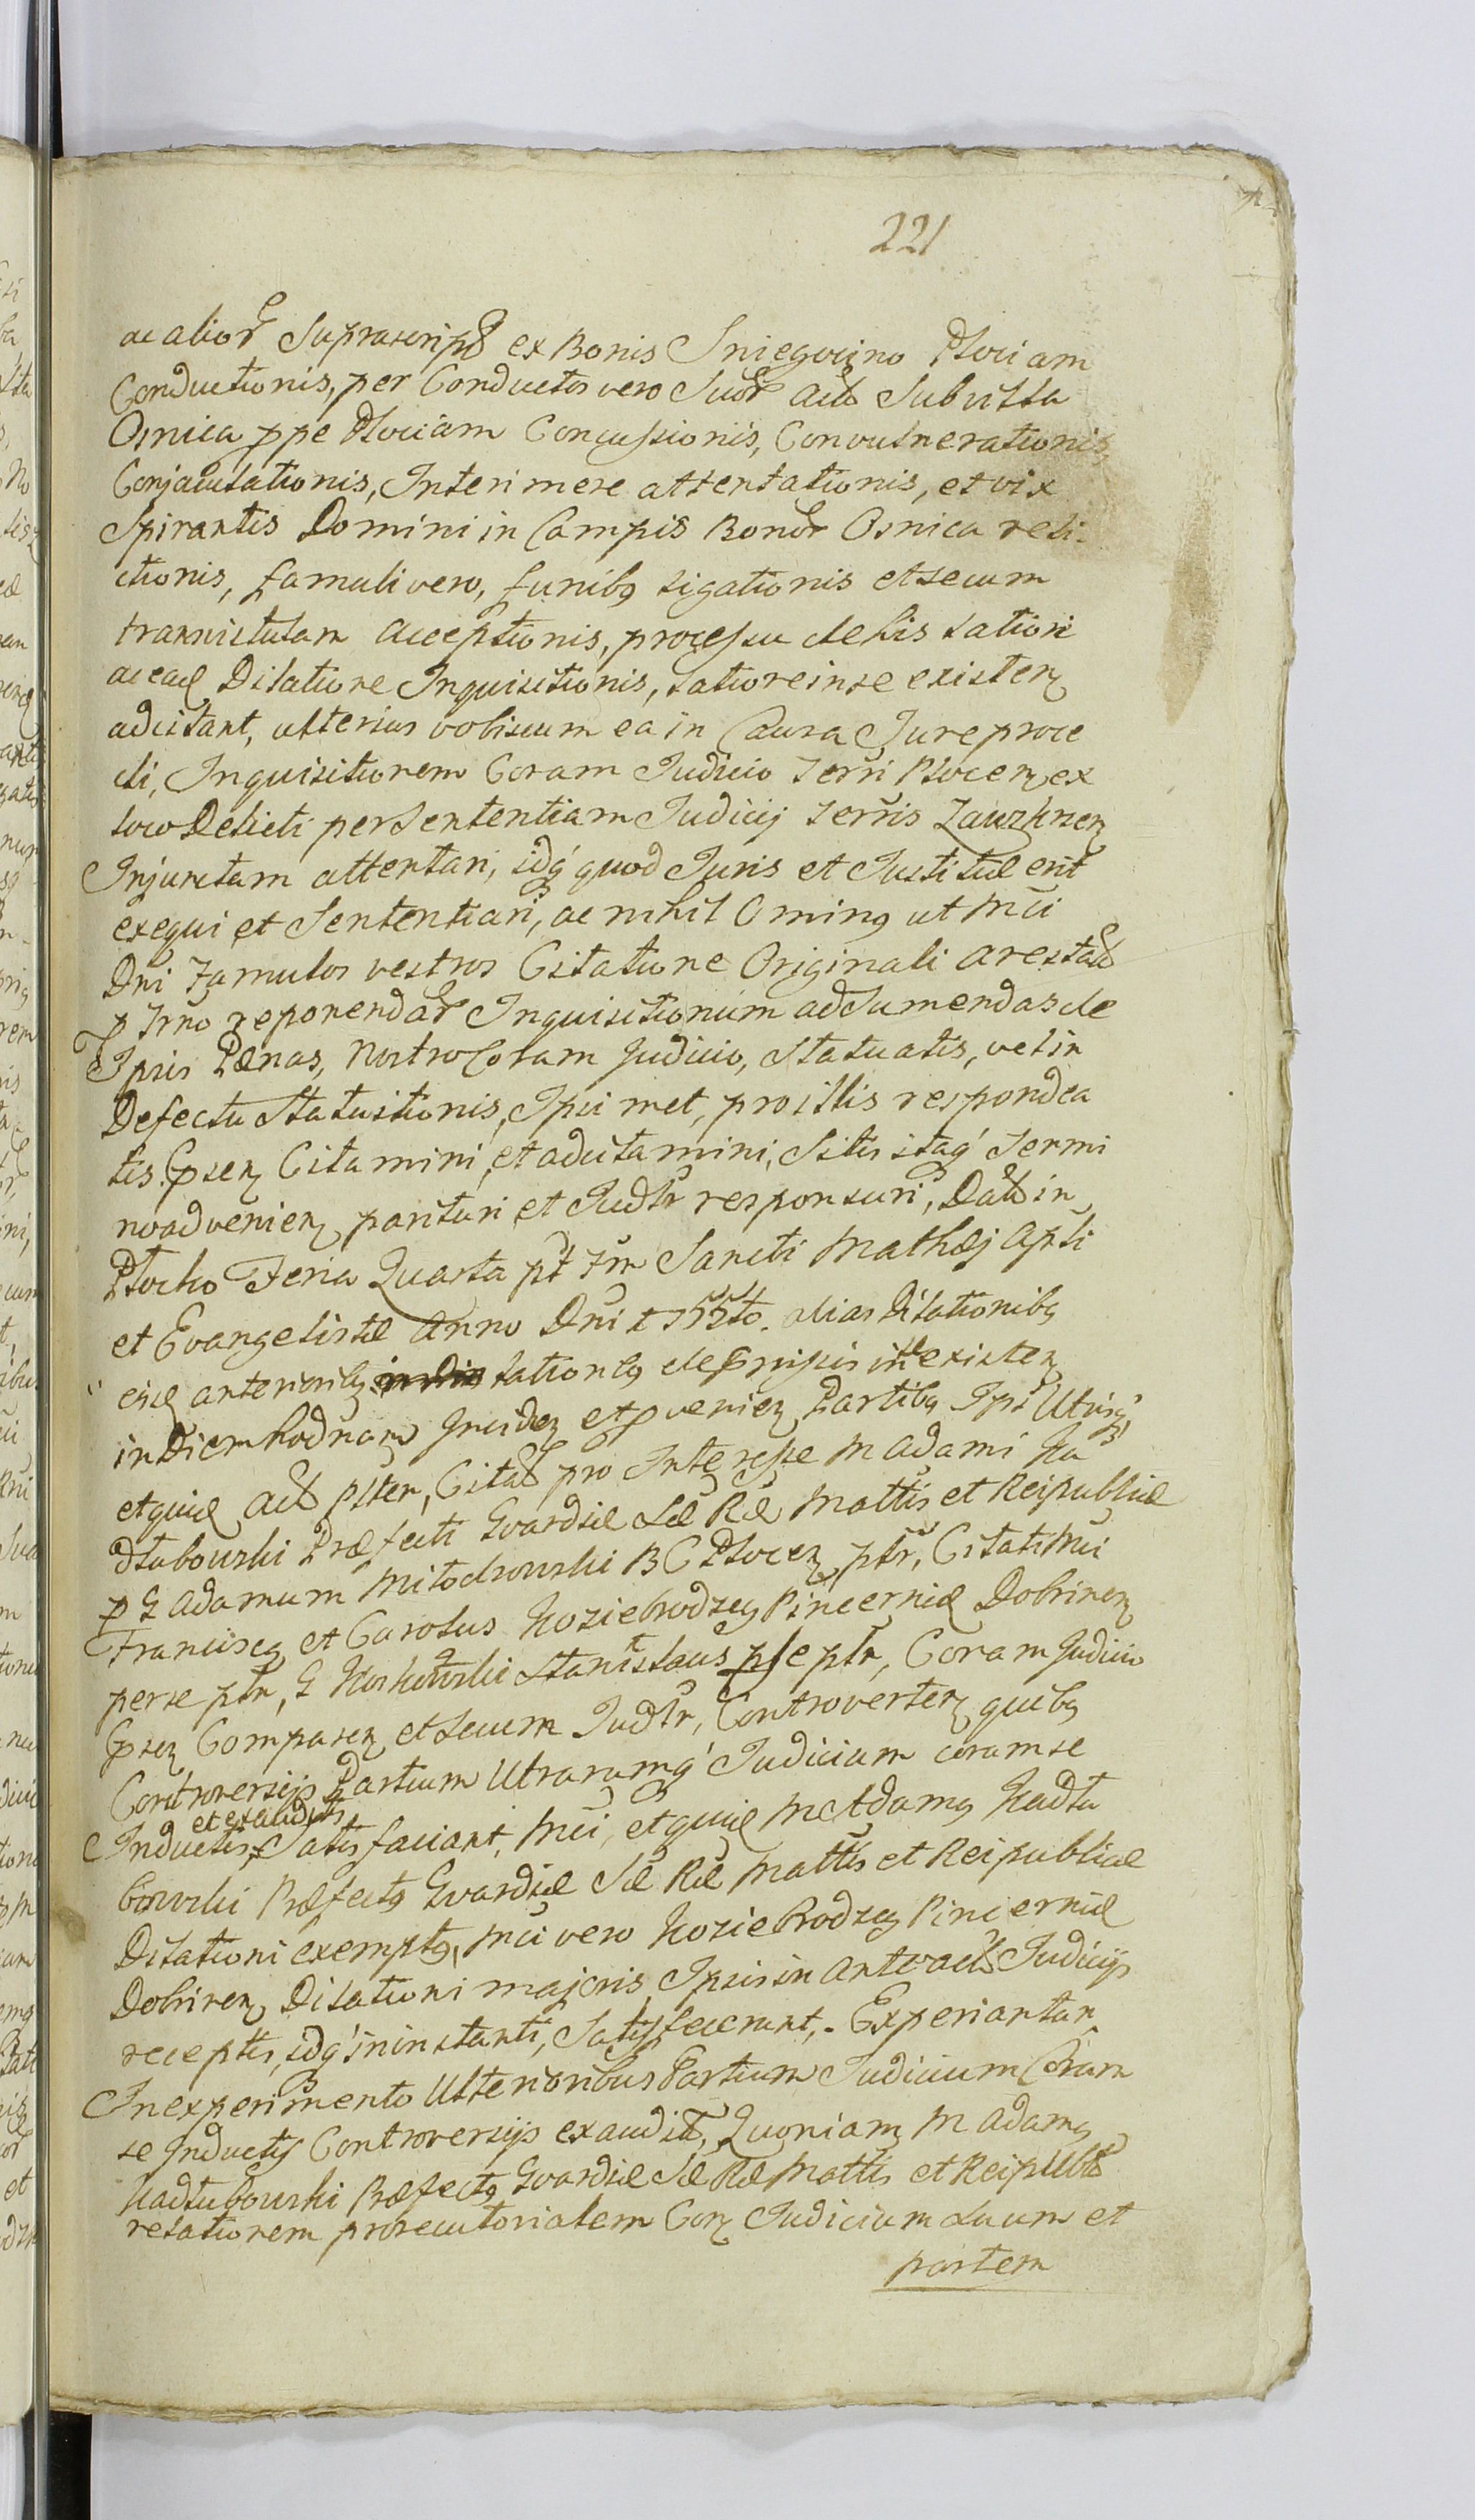 221
ac alior Suprascript ex Bonis Sniegocino Plociam
Conductionis, per Conductos vero Suor act Sub villa
Osnica ppe Plociam Concussionis, Convulnerationis,
Conjaculationis, Interimere attentationis, et vix
Spirantis Domini in Campis Bonor Osnica reli-
ctionis, famuli vero, funibq ligationis et secum
transvictulam acceptionis, processu de his latiori
ac ead Dilatione Inquisitionis, latiore in se existen
adcitant, ulterius vobiscum ea in Causa Jure proce
di, Inquisitionem Coram Judicio Terri Plocen ex
loco Delicti per Sententiam Judicij Terris Zawzkrzen
Injunctam attentari, idq quod Juris et Justitiæ erit
exequi et Sententiari, ac nihil Ominq ut Mci
Dni Famulos vestros Citatione Originali arestat
p Trno reponendar Inquisitionum ad Sumendas de
Ipsis Pænas, Nostro Coram Judicio, Statuatis, vel in
Defectu Statuitionis, Ipsi met, pro illis respondea
tis. Gpsen Citamini, et adcitamini, Sitis itaq Termi
no advenien parituri et Judlr responsuri, Datt in
Plocko Feria Quarta pt Fm Sancti Mathæj Apli
et Evangelistæ Anno Dni 1755to. alias Dilationibq
eisd anterioribq lationibq descriptis in se existen
in Diem hodnam Inciden et pvenien Partibq Ips Utrisq
et quid act Pltem, Citat pro Interesse M Adami Na
dłubowski Præfecti Gvardiæ Sæ Ræ Mattis et Reipublicæ
p G Adamum Miłodrowski B C Plocen ptr, Citati Mci
Franciscq et Carolus Koziebrodzcy Pincernid Dobrinen
per se ptn, G Koskowski Stanislaus p se ptr, Coram Judicio
Gpsen Comparen et Secum Judlr, Controverten quibq
Controversijs Partium Utrarumq Judicium coram se
et exauditis
Inductis, Satisfaciant, Mci, et quid M Adamq Nadłu
bowski Præfectq Gvardiæ Sæ Ræ Mattis et Reipublicæ
Dilationi exemptq, Mci vero Koziebrodzcy Pincernid
Dobrinen Dilationi majoris Ipsis in anteact Judicijs
receptis, idq in instanti, Satisfecerunt,. Experiantur
In experimento Ulterioribus Partium Judicium Coram
se Inductis Controversijs exaudit, Quoniam M Adamq
Nadłubowski Præfectq Gvardiæ Sæ Ræ Mattis et Reipubl
relationem prosecutorialem Con Judicium Suum et
partem